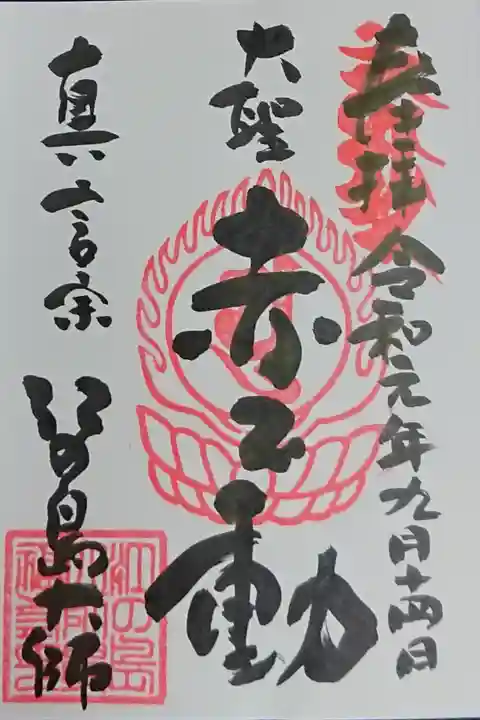 奉拝 令和元年九月十四日
大聖
赤不動
真言宗
江の島大師